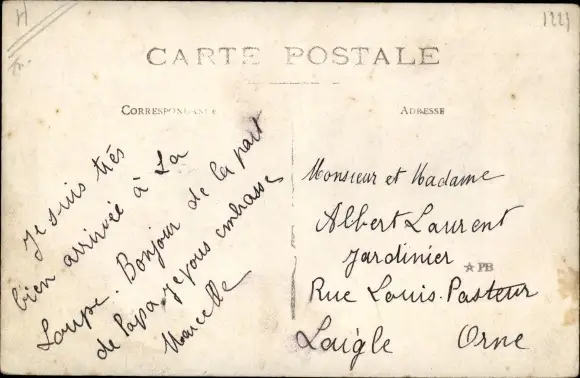 H
1221
CARTE POSTALE
CORRESPONDANCE
ADRESSE
Je suis très
bien arrivée à La
Loupe. Bonjour de la part
de Papa. Je vous embrasse
Marcelle
Monsieur et Madame
Albert Laurent
Jardinier
PB
Rue Louis. Pasteur
Laigle Orne